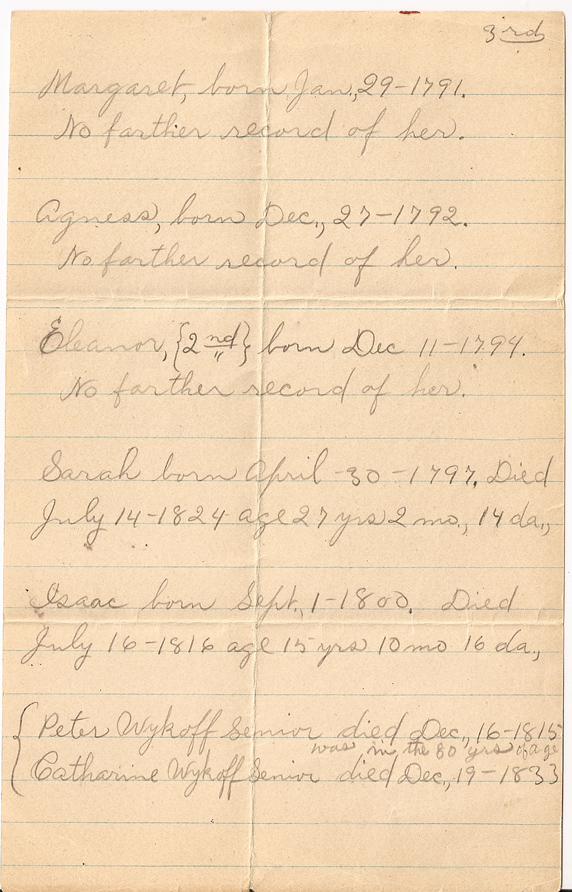 3rd
Margaret, born Jan., 29-1791.
No farther record of her.
Agness, born Dec., 27-1792.
No farther record of her.
Eleanor, {2nd} born Dec 11-1794.
No farther record of her.
Sarah born April-30-1797. Died
July 14-1824 age 27 yrs 2 mo., 14 da.,
Isaac born Sept., 1-1800. Died
July 16-1816 age 15 yrs 10 mo 16 da.,
Peter Wykoff Senior died Dec., 16-1815
was in the 80 yrs of age
Catharine Wykoff Senior died Dec., 19-1833